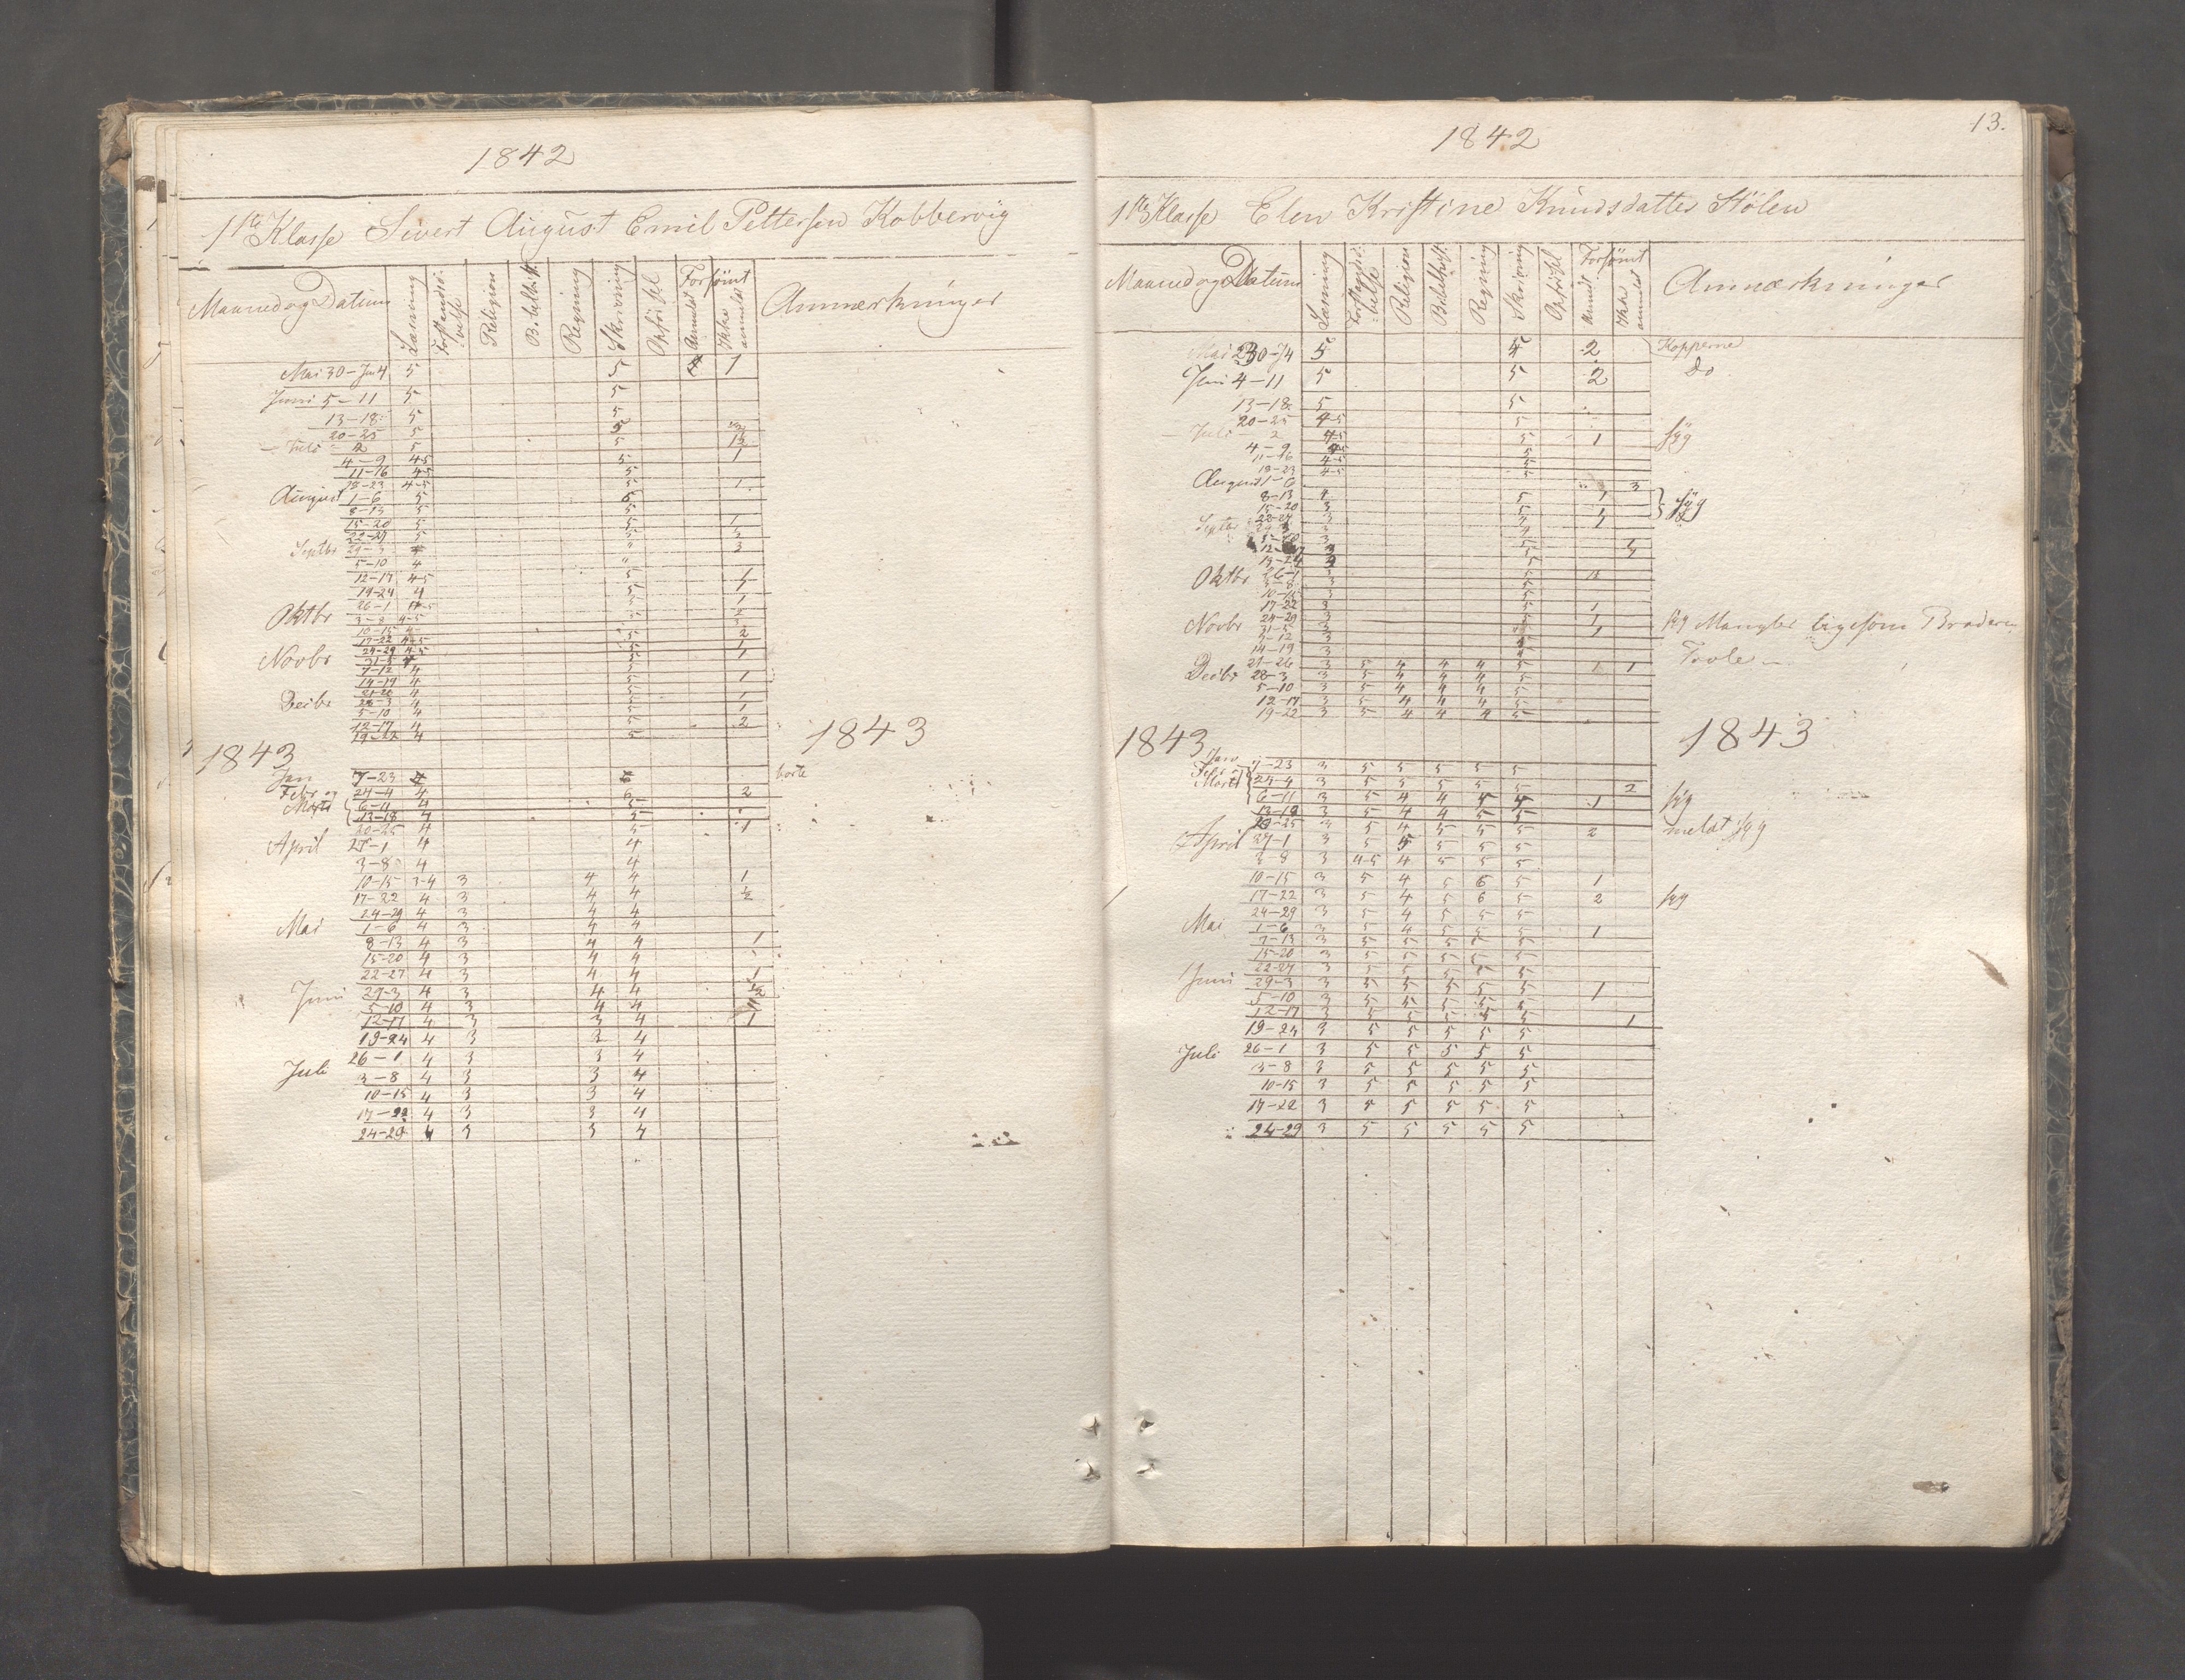 1842
1ste Klasse Sivert August Emil Pettersen Kobbervig
Maaned og Datum Læsning Forstandsø:velse Religion Bibelhist. Regning Skrivning Opførsel Forsømt Anmeldt Ikke anmeldt Anmærkninger
Mai 30-Jun 4 5 5 1
Juni 5-11 5 5
13-18 5 5
20-25 5 5
Juli 2 5 5
4-9 4-5 5 1
11-16 4-5 5
18-23 4-5 5 1
August 1-6 5 6
8-13 5 5
15-20 5 5 1
22-27 5 5
Septbr 29-3 " 3
5-10 4 "
12-17 4-5 5
19-24 4 5
Oktbr 26-1 5
3-8 4-5
10-15 4
17-22 4-5
Novbr 24-29 4-5 5
31-5
7-12 4 5
14-19 4 5
21-26 4 5
Decbr 28-3 4 5
5-10 4 5
12-17 4 5 2
19-22 4 5
1843 1843
Jan 7-23 4 6 borte
Febr og 24-4 4 6 2
Marts 6-11 4 5
13-18 4 5
20-25 4 5 1
April 27-1 4 4
3-8 4 4
10-15 3-4 3 4 4 1
17-22 4 3 4 4 1/2
24-29 4 3 4 4
Mai 1-6 4 3 4 4
8-13 4 3 4 4 1
15-20 4 3 4 4
22-27 4 3 4 4 1
Juni 29-3 4 3 4 4
5-10 4 3 4 4
12-17 4 3 3 4 1
19-24 4 3 3 4
Juli 26-1 4 3 3 4
3-8 4 3 3 4
10-15 4 3 3 4
17-22 4 3 3 4
24-29 4 3 3 4
13.
1842
1ste Klasse Elen Kristine Knudsdatter Stølen
Maaned og Datum Læsning Forstandsø:velse Religion Bibelhist. Regning Skrivning Opførsel Forsømt Anmdt Ikke anmeldt Anmærkninger
Mai 30-J4 5 4 2 Kopperne
Juni 4-11 5 5 2 Do
13-18 5 5
20-25 4-5 5
Juli 2 4-5 5 1 syg
4-9 5
11-16 4-5 5
18-23 4-5 5
August 1-6 3
8-13 4 5 1 } syg
15-20 3
22-27 3
Septbr 29-3 3
5-10 3 5
12-17 3 5
19-24 5
Oktbr 26-1 3 5
3-8 3 5
10-15 3 5
17-22 3 5 1
24-29 3 5 1 syg Mangler ligesom Broderen
Novbr 31-5 3 1
7-12 3
14-19 3 Tavle
21-26 3 5 4 4 4 5 1 1
Decbr 28-3 3 5 4 4 4 5
5-10 3 5 4 4 4 5
12-17 3 5 4 4 4 5
19-22 3 5 4 4 4 5
1843 1843
Janr 7-23 3 5 5 5 5 5
Febr og Marts { 24-4 3 5 5 5 5 5 2
6-11 3 5 4 4 5 5 1 syg
13-18 3 5 4 4 5 5
20-25 3 5 4 5 5 5 2 meldt syg
April 27-1 3 5 5 5 5 5
3-8 3 4-5 4 5 5 5
10-15 3 5 4 5 6 5 1
17-22 3 5 4 5 6 5 2 syg
24-29 3 5 4 5 5 5
Mai 1-6 3 5 4 5 5 5 1
7-13 3 5 5 5 5 5
15-20 3 5 5 5 5 5
22-27 3 5 5 5 5 5
Juni 29-3 3 5 5 5 5 5 1
5-10 3 5 5 5 5 5
12-17 3 5 5 5 5 5 1
19-24 3 5 5 5 5 5
Juli 26-1 3 5 5 5 5 5
3-8 3 5 5 5 5 5
10-15 3 5 5 5 5 5
17-22 3 5 5 5 5 5
24-29 3 5 5 5 5 5